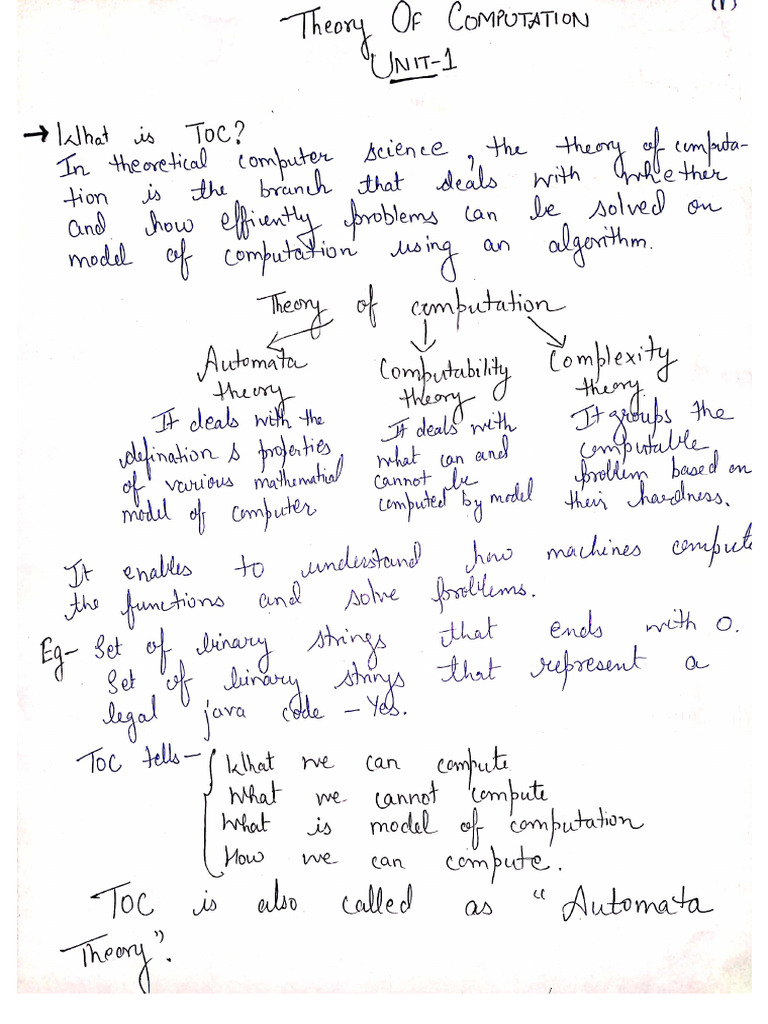 (1)
Theory Of Computation
Unit-1
→ What is TOC?
In theoretical computer science, the theory of computa-
tion is the branch that deals with whether
and how effiently problems can be solved on
model of computation using an algorithm.
Theory of computation
Automata theory
It deals with the
defination & properties
of various mathematial
model of computer
Computability theory
It deals with
what can and
cannot be
computed by model
Complexity theory
It groups the
computable
problem based on
their hardness.
It enables to understand how machines compute
the functions and solve problems.
Eg- Set of binary strings that ends with 0.
Set of binary strings that represent a
legal java code - Yes.
TOC tells -
What we can compute
What we cannot compute
What is model of computation
How we can compute.
TOC is also called as "Automata
Theory".